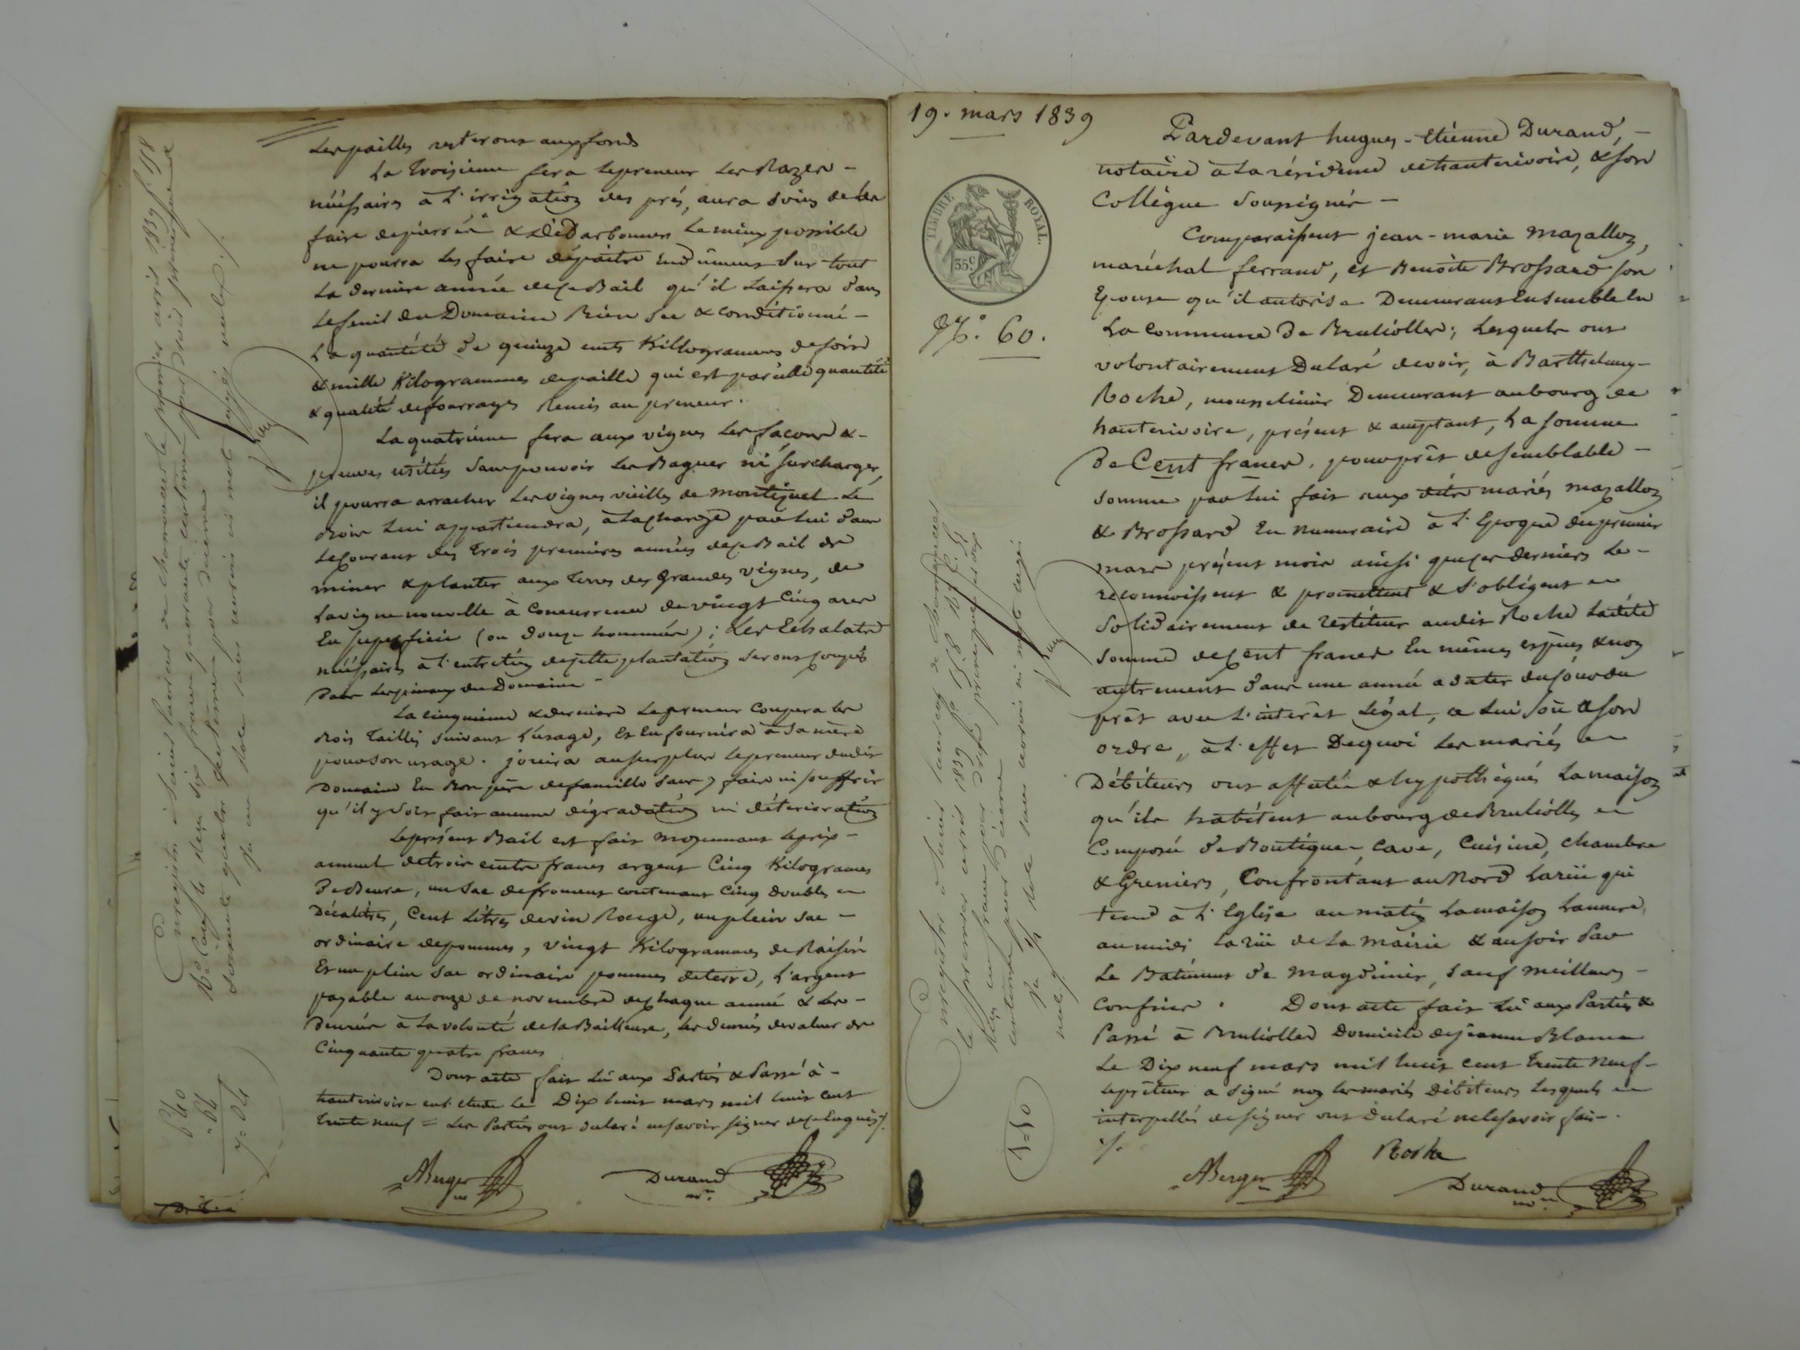 Les pailles resteront aux fonds
La troisième fera le preneur les Razes –
néssaires à l'irrigation des prés, aura soin de les
faire depierrée & dédarbonner le mieux possible
ne pourra les faire dépaitre en sur tout
La dernière année de ce Bail qu'il laissera dans
Le fenil du Domaine Bien sec & conditionné –
La quantité de quinze cents Killogrammes de foin
& mille Kilogrammes de paille qui est pareille quantité
& qualité de fourrages Remis au preneur.
La quatrième fera aux vignes les façons &–
preuves usitées sans pouvoir les Baguer ni surcharger,
il pourra arracher les vignes vieilles de montiquel Le
Bois lui appartiendra, à la charge par lui dans
Le courant des Trois premières années de ce Bail de
miner & planter aux Terres des Grandes vignes, de
La vigne nouvelle à Concurrence de vingt Cinq ares
En superficie (ou douze hommées); Les Echalats
néssaires à l'entretien de cette plantation seront
Dans du Domaine –
La cinquième & dernière Le preneur coupera les
Bois Taillis suivant l'usage, Et En fournira à sa mère
pour son usage. jouira au surplus le preneur dudit
Domaine En Bon père de famille sans y faire ni souffrir
qu'il y soit fait aucune dégradation ni déterioration
Le présent Bail est fait moyennant le prix –
annuel de trois cents francs argent Cinq Kilogrames
De Beure, un sac de froment contenant Cinq doubles
Décalitres, Cent Litres de vin Rouge, un plein sac –
ordinaire de pommes, vingt Kilogrammes de Raisin
Et un plein sac ordinaire pommes de terre, L'argent
payable au onze de novembre de chaque année & les –
Denrées à la volonté de la Bailleuse, les denrées de valeur de
Cinquante quatre francs
Dont acte fait lu aux Parties & Passé à –
hauterivoire en l'étude Le Dix huit mars mil huit cent
Trente neuf = Les Parties ont declaré ne savoir signer de ce Enquis
ABerger
Durand
Enregistré à Saint Laurent de Chamousset le premier avril 1839
Reçu le deux six francs quarante centimes pour droit principal
soixante quatre centimes pour décime
19. mars 1839
TIMBRE ROYAL.
35c
No. 60.
Pardevant hugues-Etienne Durand, –
notaire à la résidence de hauterivoire, & son
Collègue soussignés –
Comparaissent jean-marie mazallon,
maréchal ferrand, et Benoite Brossard son
Epouse qu'il autorise Demeurans Ensemble En
La Commune de Brulioller; Lesquels ont
volontairement Dclaré devoir, à Barthelemy-
Roche, mousselinier Demeurant au bourg de
hauterivoire, présent & acceptant, La somme
De Cent francs, pour prêt de semblable –
somme par lui fait aux dits mariés mazallon
& Brossard En numeraire à l'Epoque du premier
mars présent mois ainsi que ces derniers le –
reconnoissent & promettent & s'obligent
solidairement de restituer audit Roche ladite
somme de Cent francs En mêmes espèces & non
autrement dans une année a dater du jour du
prêt avec l'intérêt Légal, a lui soit a son
ordre, à l'effet Dequoi les mariés
Débiteurs ont affecté & hypothéqué La maison
qu'ils habitent au bourg de Brulioller
Composée de Boutique, Cave, Cuisine, chambre
& Greniers, Confrontant au Nord la rüe qui
tend à l'Eglise au matin la maison
au midi la rüe de la Mairie & au soir Par
Le Batiment de magdinier, sauf meilleurs –
Confins. Dont acte fait Lu aux Parties &
Passé à Brulioller Domicile de jeanne Blanc
Le Dix neuf mars mil huit cent Trente neuf –
le prêteur a signé non les mariés Débiteurs lesquels
interpellés de signer ont declaré ne le savoir faire.
Roche
ABerger
Durand
Enregistré à Saint Laurent de Chamousset
le premier avril 1839
1=10